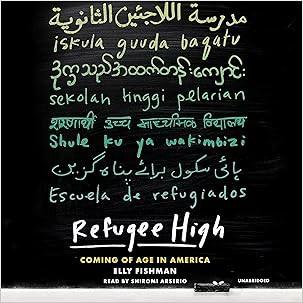 مدرسة اللاجئين الثانوية
iskula guuda baqatu
ဒုက္ခသည်အထက်တန်းကျောင်း
sekolah tinggi pelarian
शरणार्थी उच्च माध्यमिक विद्यालय
Shule ku ya wakimbizi
ہائی سکول برائے پناہ گزین
Escuela de refugiados
Refugee High
COMING OF AGE IN AMERICA
ELLY FISHMAN
READ BY SHIROMI ARSERIO
UNABRIDGED